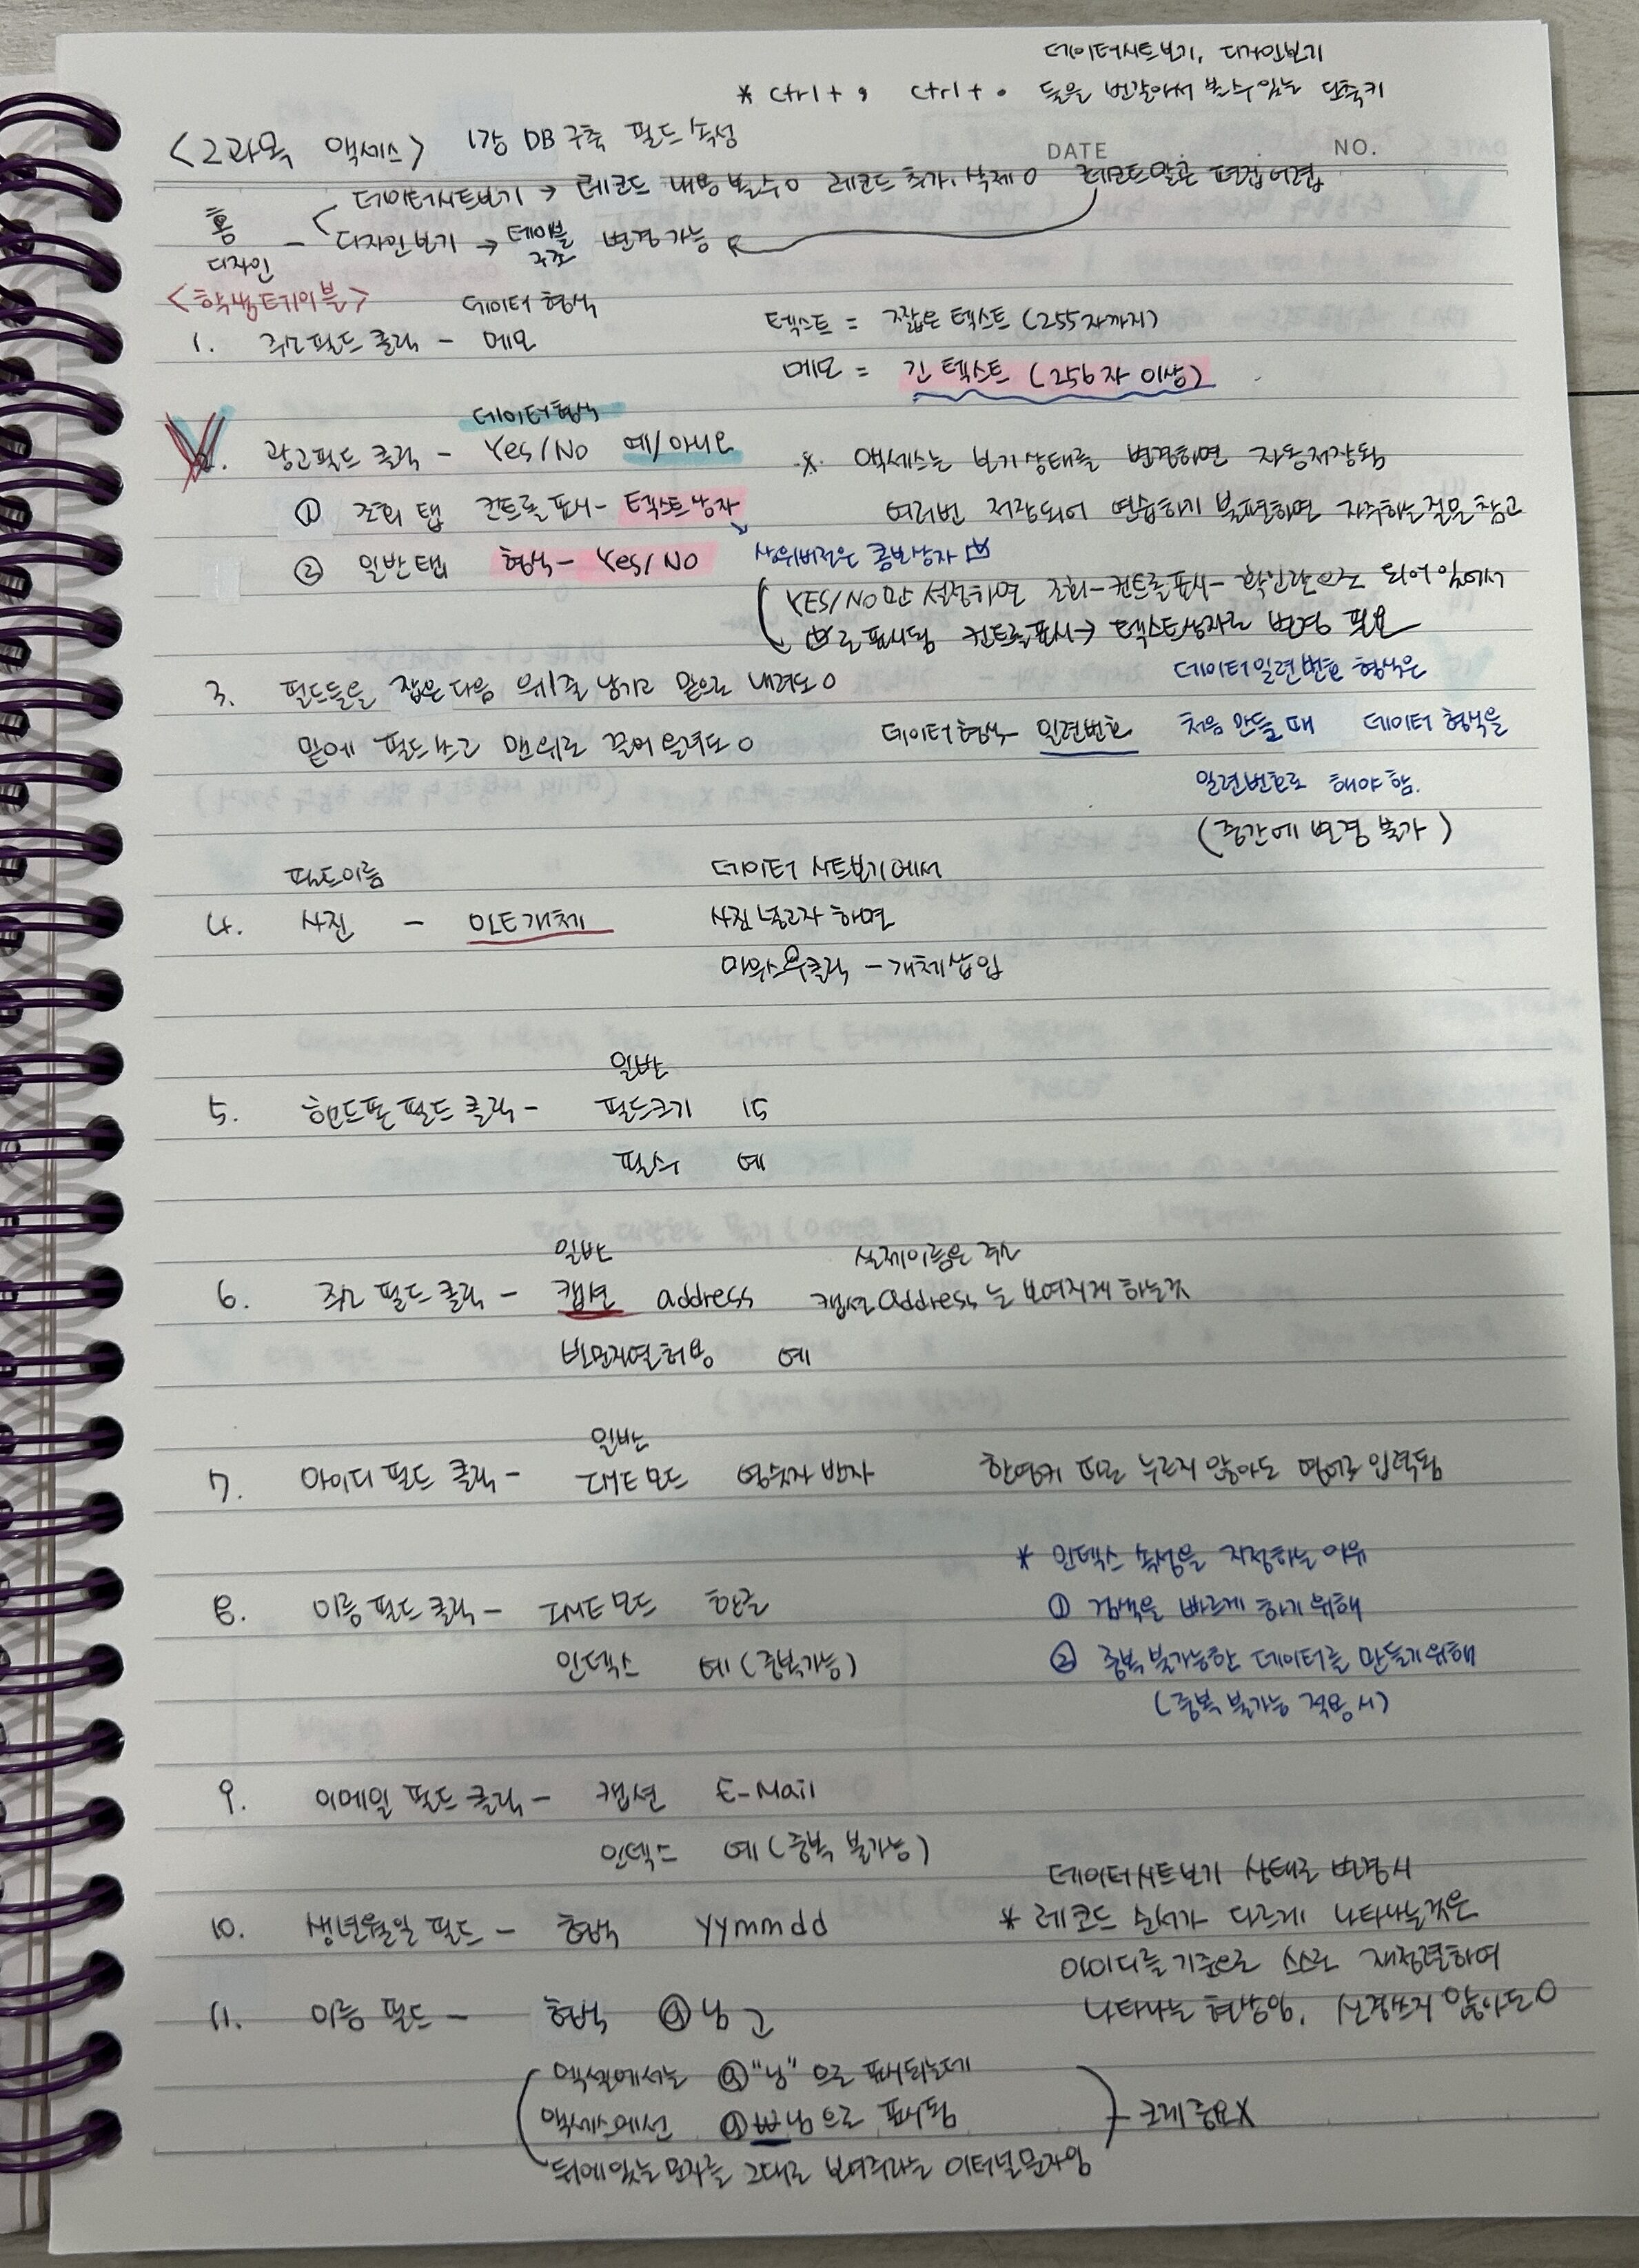 데이터시트보기, 디자인보기
* Ctrl+ , Ctrl+ . 둘을 번갈아서 볼수있는 단축키
<2과목 액세스> 1강 DB구축 필드속성
DATE NO.
데이터시트보기 → 레코드 내용 볼수o 레코드 추가, 삭제o 레코드말곤 편집어렵
홈 - 디자인보기 → 테이블 구조 변경가능
디자인
데이터 형식
1. 주소필드 클릭 - 메모
텍스트 = 짧은 텍스트 (255자까지)
메모 = 긴 텍스트 (256자 이상)
데이터형식
2. 광고필드 클릭 - Yes/No 예/아니요
* 액세스는 보기상태를 변경하면 자동저장됨
① 조회 탭 컨트롤 표시- 텍스트상자
여러번 저장되어 연습하기 불편하면 자주하는질문참고
② 일반탭 형식- Yes/No
상위버전은 콤보상자
YES/NO만 설정하면 조회-컨트롤표시- 확인란으로 되어있에서
☑로 표시됨 컨트롤표시→ 텍스트상자로 변경 필요
3. 필드들을 잡은다음 위1줄 남기고 밑으로 내려도o
데이터일련번호 형식은
밑에 필드쓰고 맨위로 끌어올려도o
데이터형식- 일련번호 처음만들때 데이터 형식을
일련번호로 해야함.
(중간에 변경 불가)
필드이름
데이터 시트보기에서
4. 사진 - OLE개체
사진넣고자 하면
마우스우클릭 - 개체삽입
일반
5. 핸드폰필드 클릭 - 필드크기 15
필수 예
일반
실제이름은 주소
6. 주소 필드 클릭 - 캡션 address 캡션address는 보여지게 하는것
빈문자열허용 예
일반
7. 아이디 필드 클릭 - IME모드 영숫자 반자
한영키 따로 누르지 않아도 영어로 입력됨
* 인덱스 속성을 지정하는이유
8. 이름 필드 클릭 - IME모드 한글
① 검색을 빠르게 하기위해
인덱스 예(중복가능)
② 중복불가능한 데이터를 만들기위해
(중복 불가능 적용시)
9. 이메일 필드 클릭 - 캡션 E-Mail
인덱스 예(중복 불가능)
데이터시트보기 상태로 변경시
10. 생년월일 필드 - 형식 yymmdd
* 레코드 순서가 다르게 나타나는것은
아이디를 기준으로 스스로 재정렬하여
11. 이름 필드 - 형식 @님 고
나타나는 현상임. 신경쓰지 않아도O
엑셀에서는 @"님"으로 표시되는데
액세스에선 @₩님으로 표시됨
- 크게 중요X
뒤에있는 문자를 그대로 보여주라는 이터널문자임